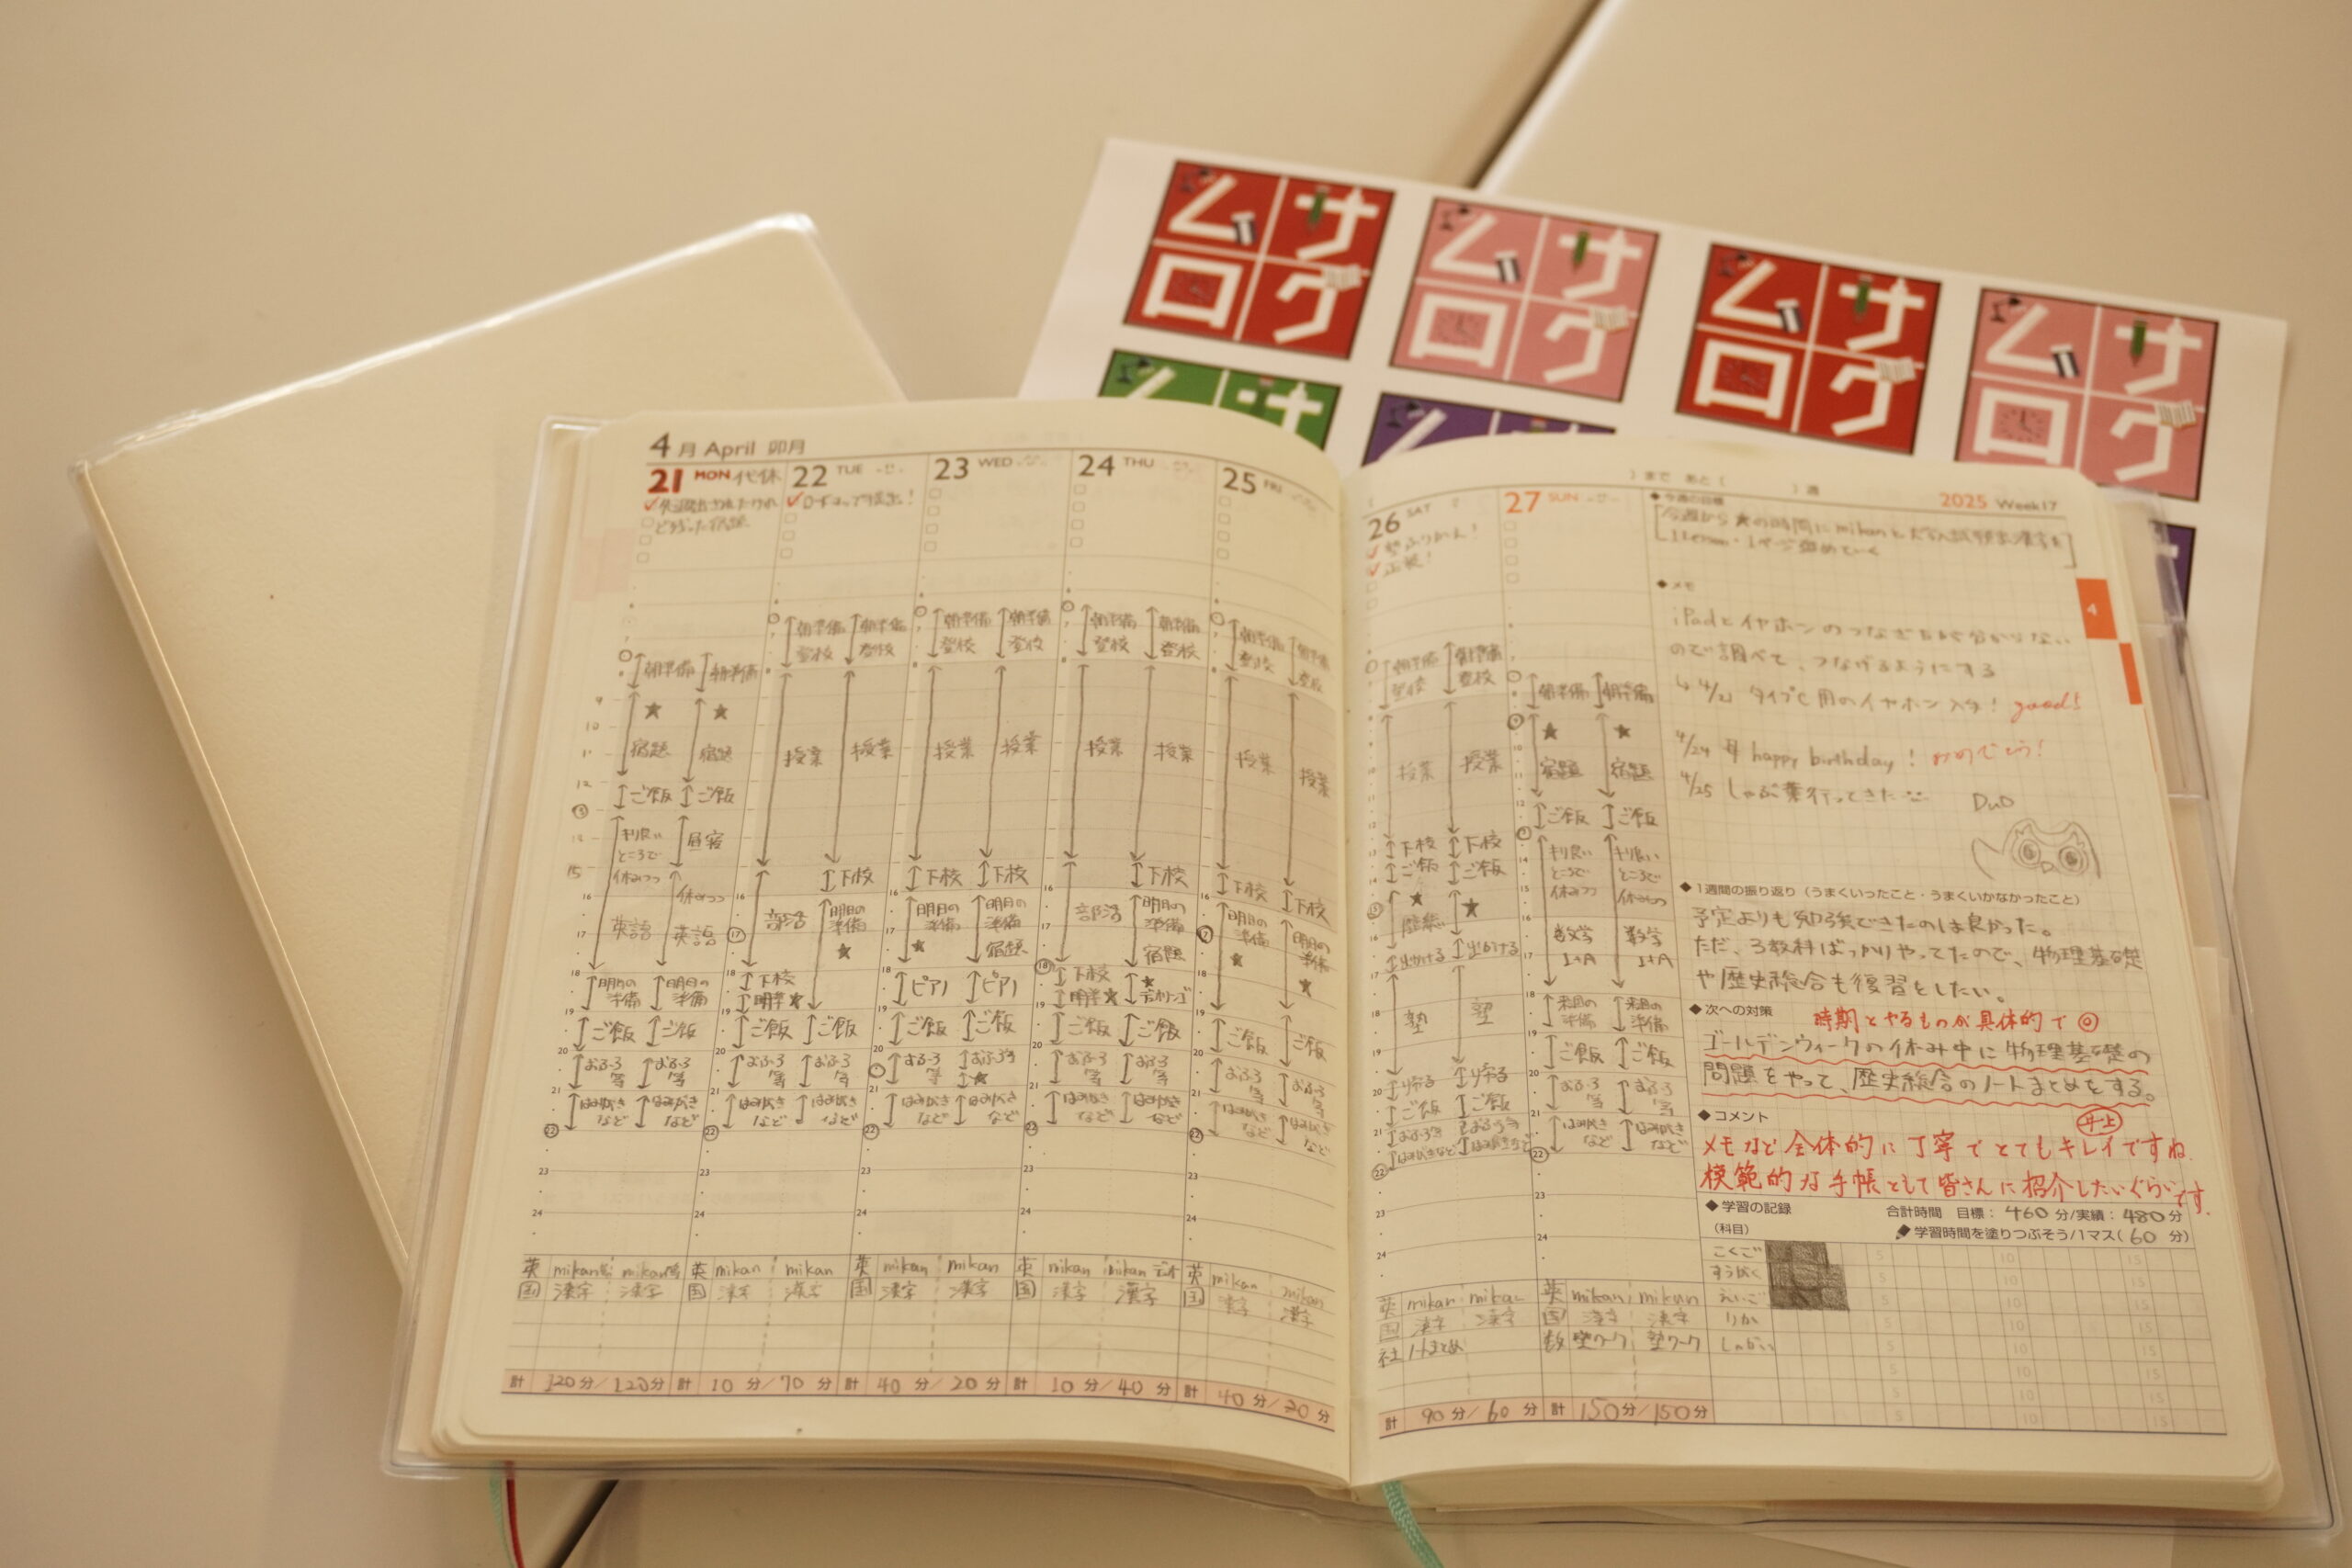 ムサ
ログ
ムサ
ログ
ムサ
ログ
ムサ
ログ
4月 April 卯月
21 MON 代休
22 TUE
✓ロードマップ提出!
23 WED
24 THU
25 FRI
朝準備 朝準備
★ ★
宿題 宿題
ご飯 ご飯
キリ良い
ところで
休みつつ
英語
昼寝
休みつつ
英語
明日の
準備
明日の
準備
ご飯 ご飯
おふろ
等
おふろ
等
はみがき
など
はみがき
など
朝準備 朝準備
登校 登校
授業 授業
部活
下校
明日の
準備
★
下校
明準★
ご飯 ご飯
おふろ
等
おふろ
等
はみがき
など
はみがき
など
朝準備 朝準備
登校 登校
授業 授業
下校 下校
明日の
準備
★
明日の
準備
宿題
ピアノ ピアノ
ご飯 ご飯
おふろ
等
おふろ等
★
はみがき
など
はみがき
など
朝準備 朝準備
登校 登校
授業 授業
部活
下校
明日の
準備
宿題
★
下校
明準★
ご飯 ご飯
おふろ
等
おふろ
等
はみがき
など
はみがき
など
朝準備 朝準備
登校 登校
授業 授業
下校 下校
明日の
準備
★
明日の
準備
★
ご飯 ご飯
おふろ
等
おふろ
等
はみがき
など
はみがき
など
英 mikan等 mikan等
国 漢字 漢字
英 mikan mikan
国 漢字 漢字
英 mikan mikan
国 漢字 漢字
英 mikan mikan
国 漢字 漢字
英 mikan mikan
国 漢字 漢字
計 120分/120分
計 10分/70分
計 40分/20分
計 10分/40分
計 40分/20分
26 SAT
✓正装!
27 SUN
朝準備 朝準備
登校 登校
授業 授業
下校 下校
ご飯 ご飯
★ ★
歴総
出かける 出かける
塾 塾
帰る 帰る
ご飯 ご飯
おふろ等 おふろ等
はみがきなど はみがきなど
朝準備 朝準備
★ ★
宿題 宿題
ご飯 ご飯
キリ良い
ところで
休みつつ
キリ良い
ところで
休みつつ
数学
I+A
数学
I+A
来週の
準備
来週の
準備
ご飯 ご飯
おふろ
等
おふろ
等
はみがき
など
はみがき
など
英 mikan mikan
国 漢字 漢字
社 ノートまとめ
英 mikan mikan
国 漢字 漢字
数 塾ワーク 塾ワーク
計 90分/60分
計 150分/150分
)まで あと( )週
2025 Week17
◆今週の目標
◆メモ
iPadとイヤホンのつなぎ方が分からない
ので調べて、つなげるようにする
↳4/21 タイプC用のイヤホン入手! good!
4/24 母 happy birthday! おめでとう!
4/25 しゃぶ葉行ってきた
DuO
4
◆1週間の振り返り(うまくいったこと・うまくいかなかったこと)
予定よりも勉強できたのは良かった。
ただ、3教科ばっかりやってたので、物理基礎
や歴史総合も復習をしたい。
◆次への対策
時期とやるものが具体的で◎
ゴールデンウィークの休み中に物理基礎の
問題をやって、歴史総合のノートまとめをする。
◆コメント
井上
メモなど全体的に丁寧でとてもキレイですね
模範的な手帳として皆さんに紹介したいぐらいです.
◆学習の記録
合計時間 目標:460分/実績:480分
(科目)
学習時間を塗りつぶそう/1マス(60分)
こくご
すうがく
えいご
りか
しゃかい